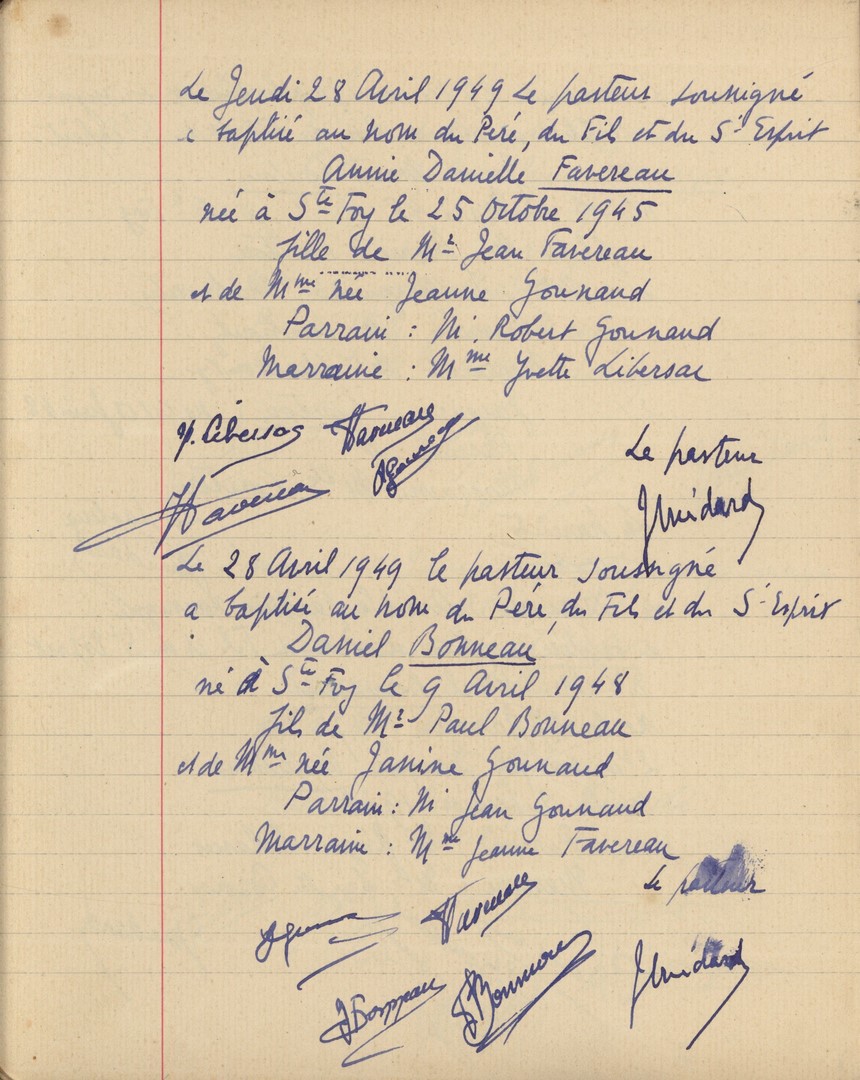 Le Jeudi 28 Avril 1949 Le pasteur soussigné
a baptisé au nom du Péré, du Fils et du St Esprit
Annie Danielle Favereau
née à Ste Foy le 25 Octobre 1945
fille de Mr Jean Favereau
et de Mme née Jeanne Gounaud
Parrain : M. Robert Gounaud
Marraine : Mme Yvette Libersac
Y. Libersac
Le pasteur
JMédard
Le 28 Avril 1949 le pasteur soussigné
a baptisé au nom du Péré, du Fils et du St Esprit
Daniel Bonneau
né à Ste Foy le 9 Avril 1948
fils de Mr Paul Bonneau
et de Mme née Janine Gounaud
Parrain : M Jean Gounaud
Marraine : Mme Jeanne Favereau
Le pasteur
JMédard